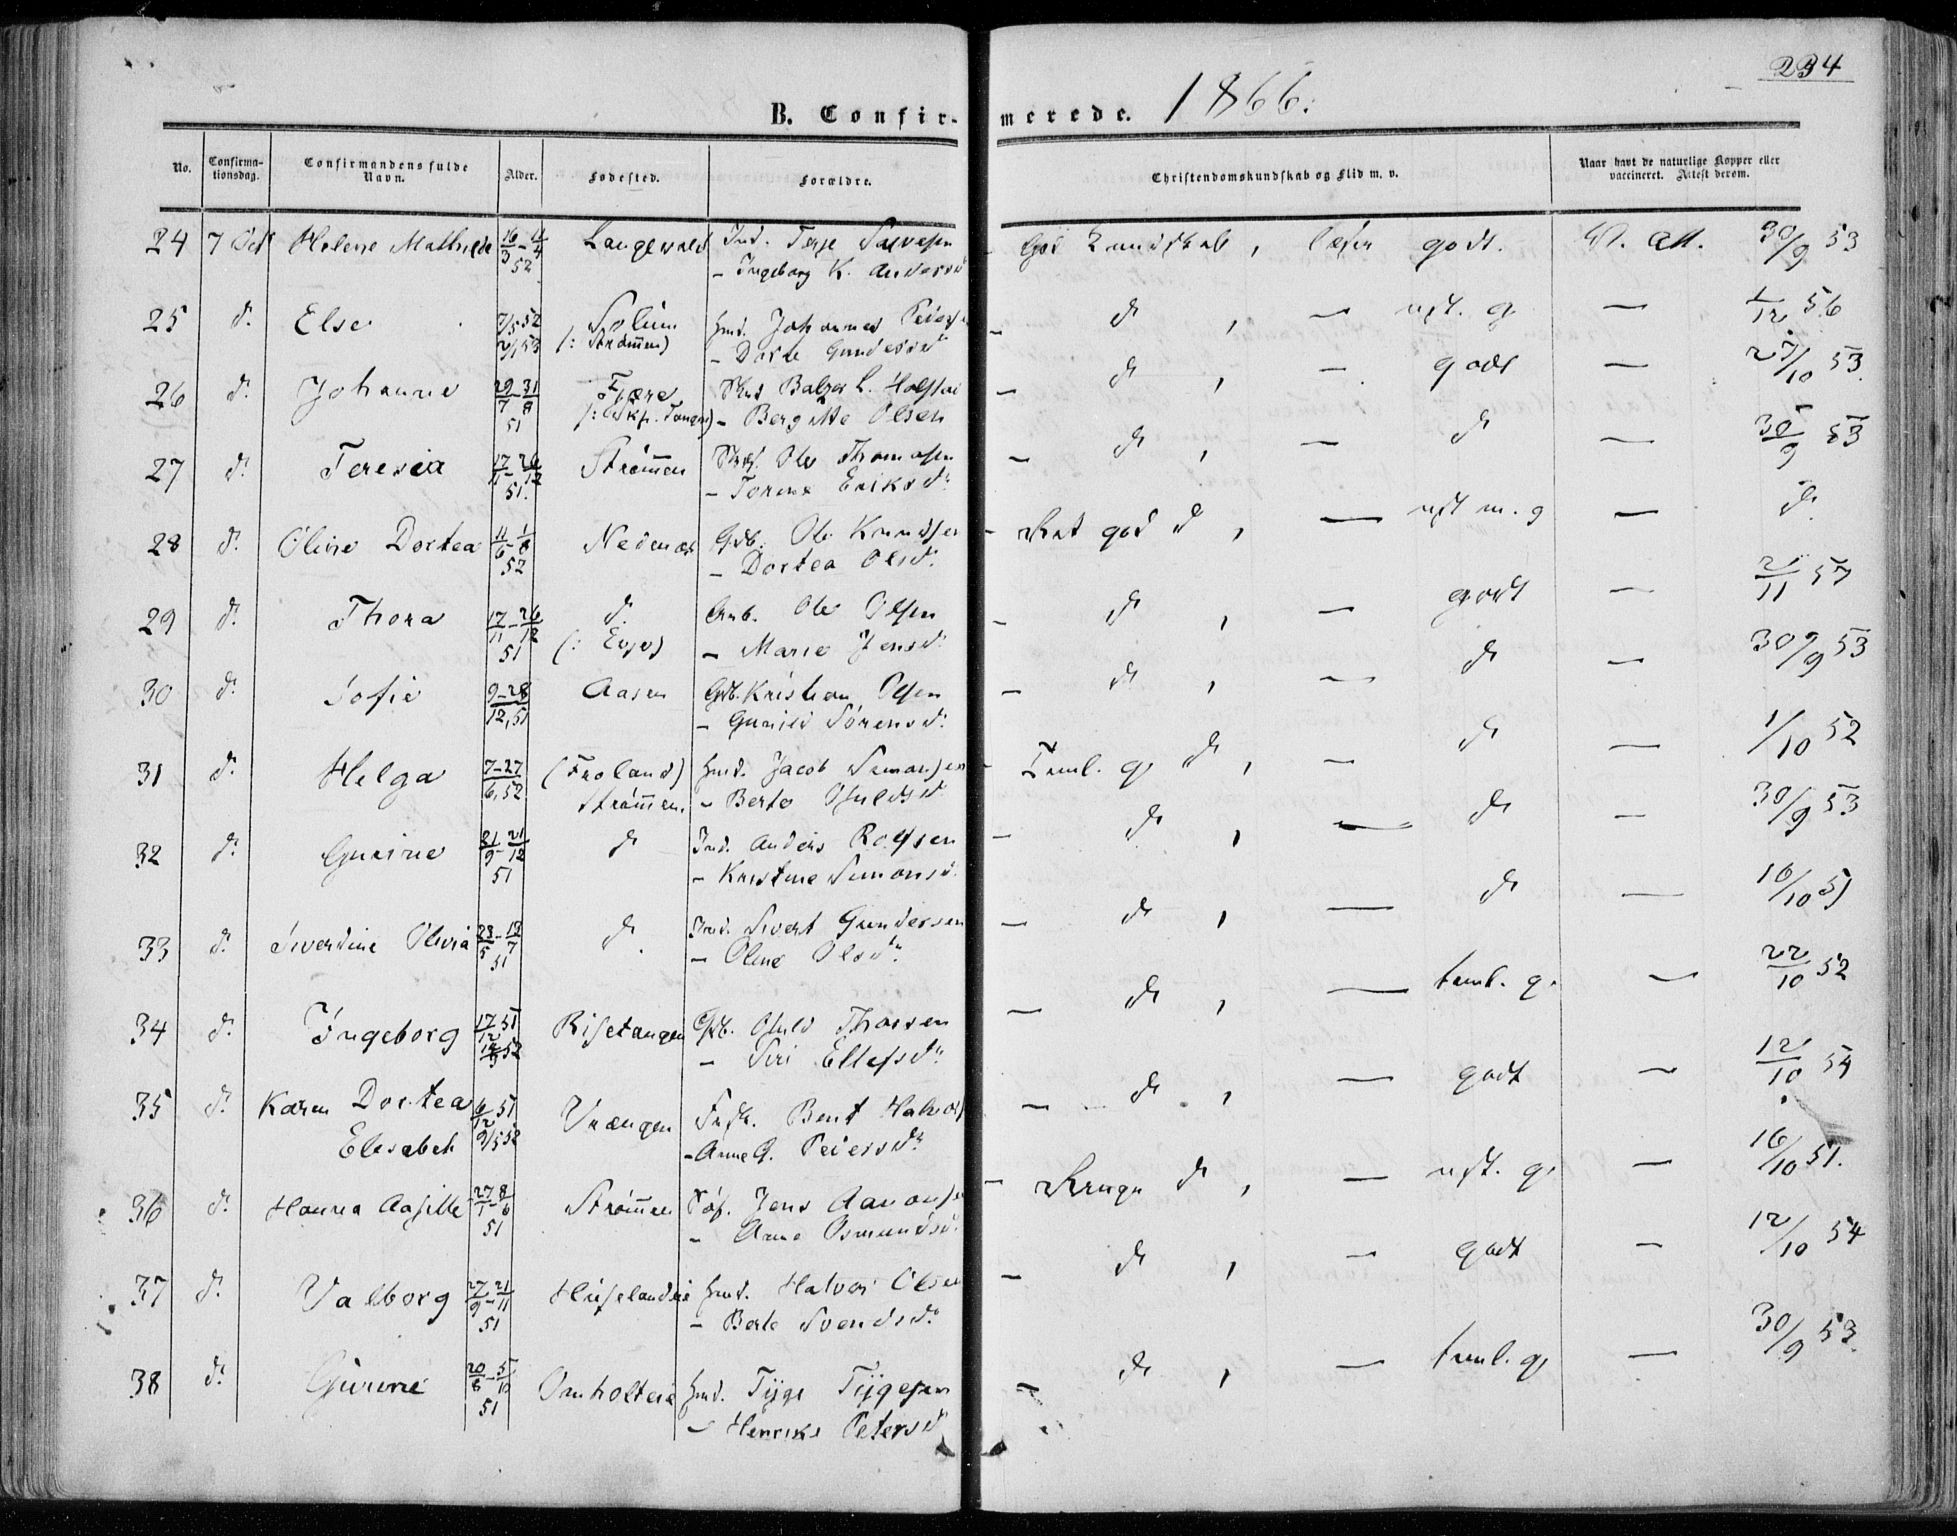 234
B. Confirmerede. 1866.
No. Confirmationsdag. Confirmandens fulde Navn. Alder. Fødested. Forældre. Christendomskundskab og Flid m. v. Naar havt de naturlige Kopper eller vaccineret. Attest derom.
24 7 Oct Helene Mathilde 16/3 - 4/4 52 Langevold Ind. Terje - God Kundskab, læser godt. W. Att. 30/9 53
- Ingeborg K. Andersd
25 d. Else 7/5 52 Solum Hmd. Johannes Peders - d, - ngt. g. - 1/12 56
2/1 53 (: Strømmen) - Dorte Gundersd
26 d. Johanne 29/7 - 31/8 51 Fjære Balzer L. Holst - d, - godt 27/10 53.
- Bergitte Olsen
27 d. Teresia 17/11 - 26/12 51. Strømmen Ole Thomasen - d, - d - 30/9 53
- Torine Eriksd.
28 d. Oline Dortea 11/6 - 1/8 52 Nedenæs Gdb. Ole Knudsen - Ret god d, - ngt m. g - d
- Dortea Olsd.
29 d. Thora 17/11 - 26/12 51 d. Grb. Ole Olsen - d, - godt - 21/11 57
(: Evje) - Marie Jensd.
30 d. Sofie 9-28/12, 51 Aasen Gdb. Kristian Olsen - d, - d - 30/9 53
- Gunild Sørensd.
31 d. Helga 7-27/6, 52 (Froland) Hmd. Jacob Simonsen - Teml. g. d, - d - 1/10 52
Strømmen. - Berte
32 d. Gurine 21/9 - 21/12 51 d Ind. Anders Rolfsen - d, - d - 30/9 53
- Kristine Simonsd.
33 d. Siverdine Olivia 23/5 - 13/7 51 d. Ind. Sivert Gundersen - d, - d - 16/10 51
- Oline Olsd.
34 d. Ingeborg 17/12 51 Risetangen Gdb. - d, - teml. g. - 22/10 52
52 - Siri Ellefsd.
35 d. Karen Dortea 6/12 51 Vrængen Bent Halvors - d, - godt - 12/10 54
Elisabeh 9/5 52 - Anne G. Pedersd.
36 d. Hanna Aasille 27/1 - 8/6 51 Strømmen Søf. Jens Aanonsen - d, - ngt. g. - 16/10 51.
- Anne Osmundsd.
37 d. Valborg 27/9 - 21/11 51 Hisselandeie Hmd. Halvor Olsen - d, - godt - 12/10 54
- Berte Svendsd.
38 d. Gurine 20/8 - 5/10 51 Omholteie Hmd. Tyge Tygesen - d, - teml. g. - 30/9 53.
- Henrike Petersd